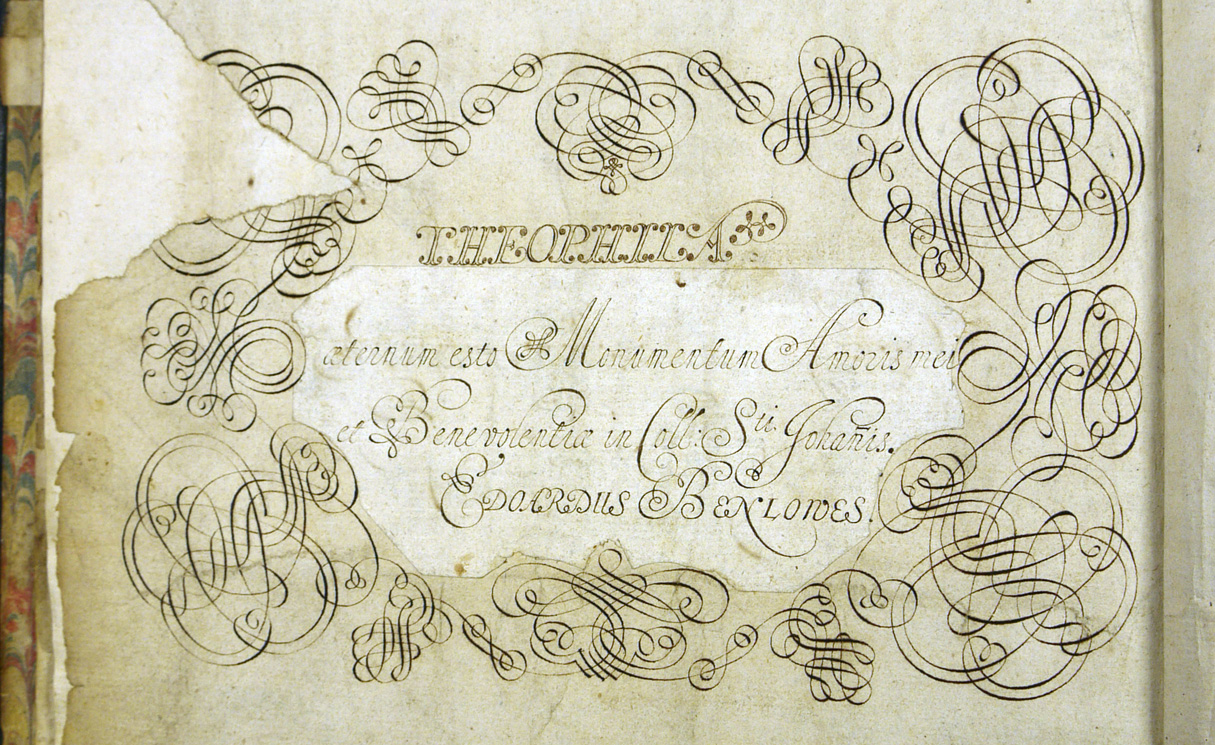 THEOPHILA
æternum esto Monumentum Amoris mei
et Benevolentiæ in Coll: Sti. Johañis.
EDOARDUS BENLOWES.